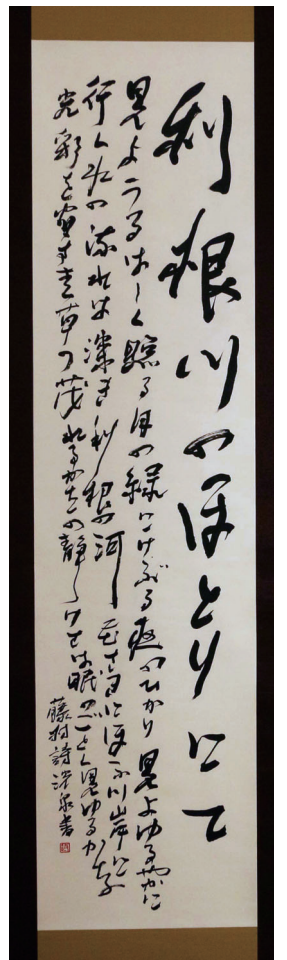 利根川のほとりにて
見よ うるはしく 照る月の緑にけぶる夜のひかり 見よゆるやかに
行く水の流れは深き利根の河 にほふ川岸に
光彩を宿す青草の茂れるかたの静けさは眠のごとく見ゆるかな
藤村詩 書